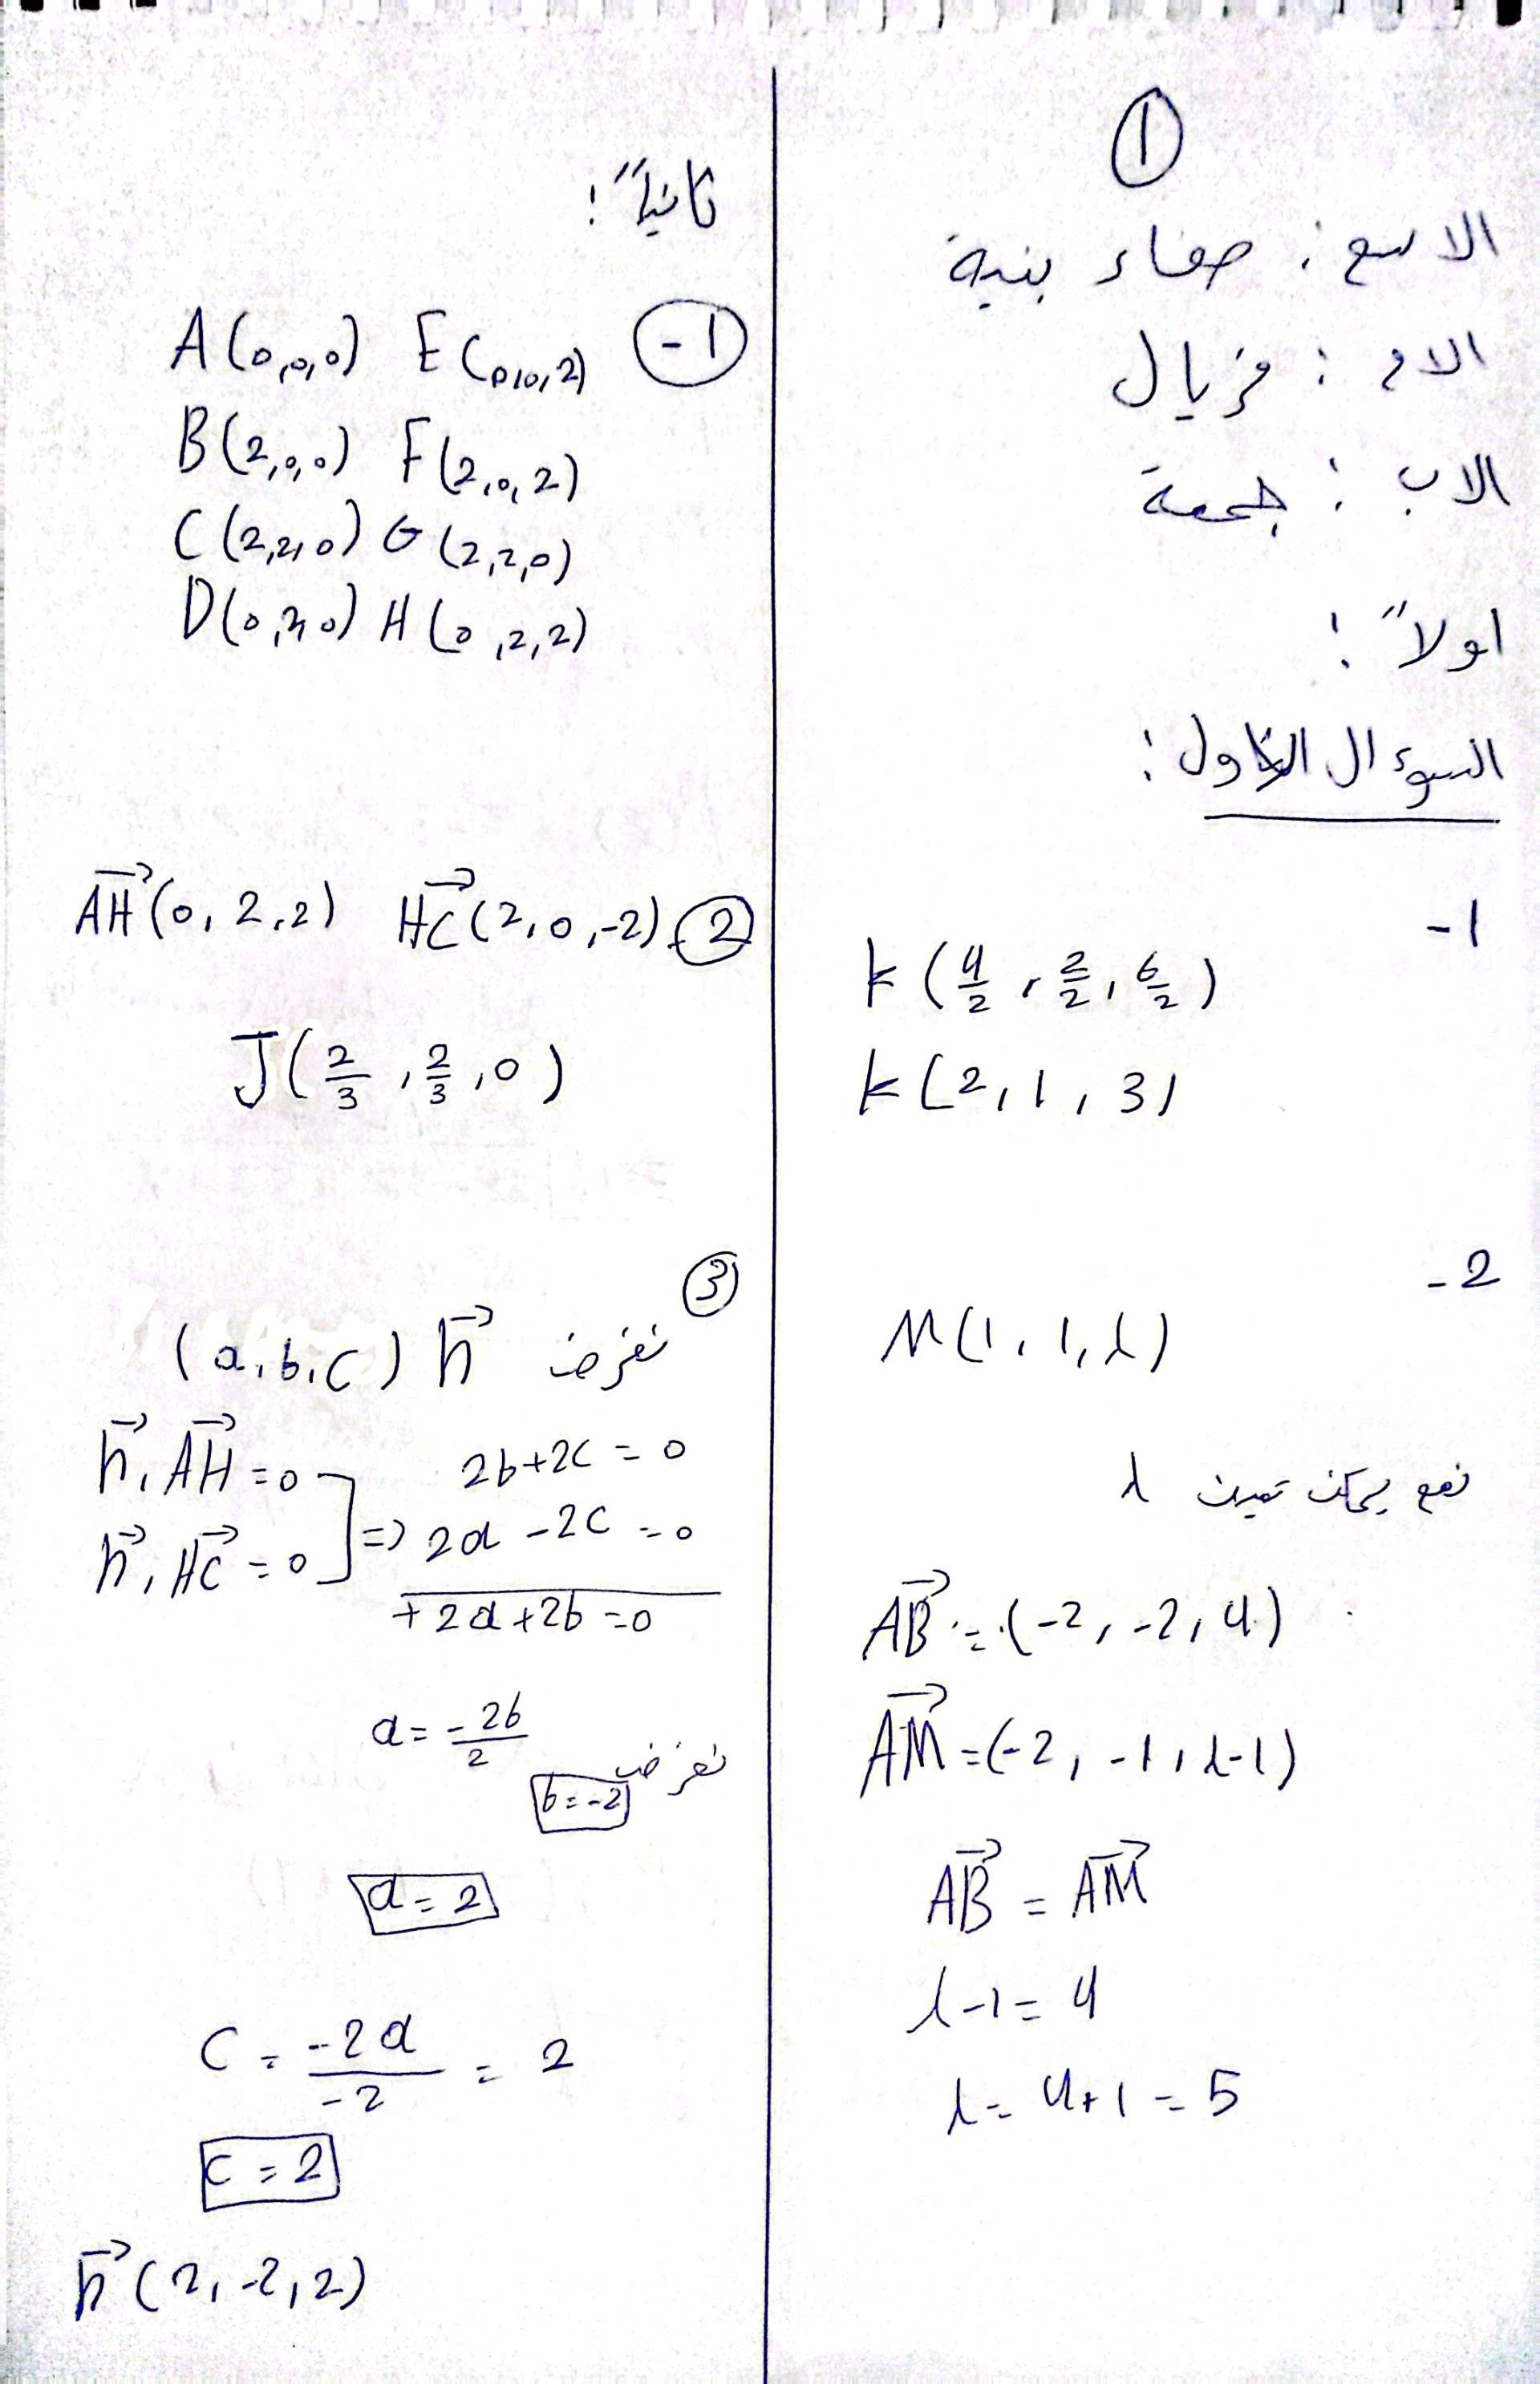 ①
الاسم : صفاء بنية
الام : فريال
الاب : جمعة
اولاً :
السوءال الاول :
-1
k (4/2 , 2/2 , 6/2)
k (2, 1, 3)
-2
M (1, 1, λ)
نعم يمكن تعيين λ
AB⃗ = (-2, -2, 4)
AM⃗ = (-2, -1, λ-1)
AB⃗ = AM⃗
λ-1 = 4
λ = 4+1 = 5
ثانياً :
-1
A (0,0,0) E (0,0,2)
B (2,0,0) F (2,0,2)
C (2,2,0) G (2,2,0)
D (0,2,0) H (0,2,2)
② AH⃗ (0, 2, 2) HC⃗ (2, 0, -2)
J (2/3 , 2/3 , 0)
③
نفرض n⃗ (a, b, c)
n⃗ . AH⃗ = 0 2b+2c = 0
n⃗ . HC⃗ = 0 ] => 2a - 2c = 0
+2a+2b = 0
a = -2b/2
نفرض b = -2
a = 2
c = -2a/-2 = 2
c = 2
n⃗ (2, -2, 2)